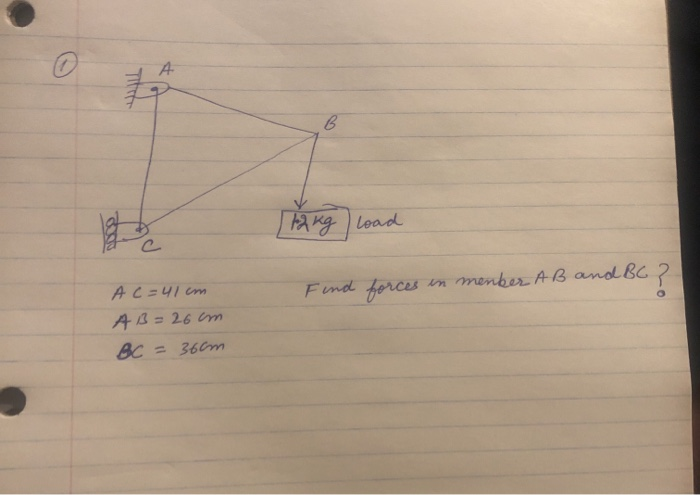 1
A
B
1.2 kg load
C
AC = 41 cm Find forces in menber AB and BC ?
AB = 26 cm
BC = 36 cm